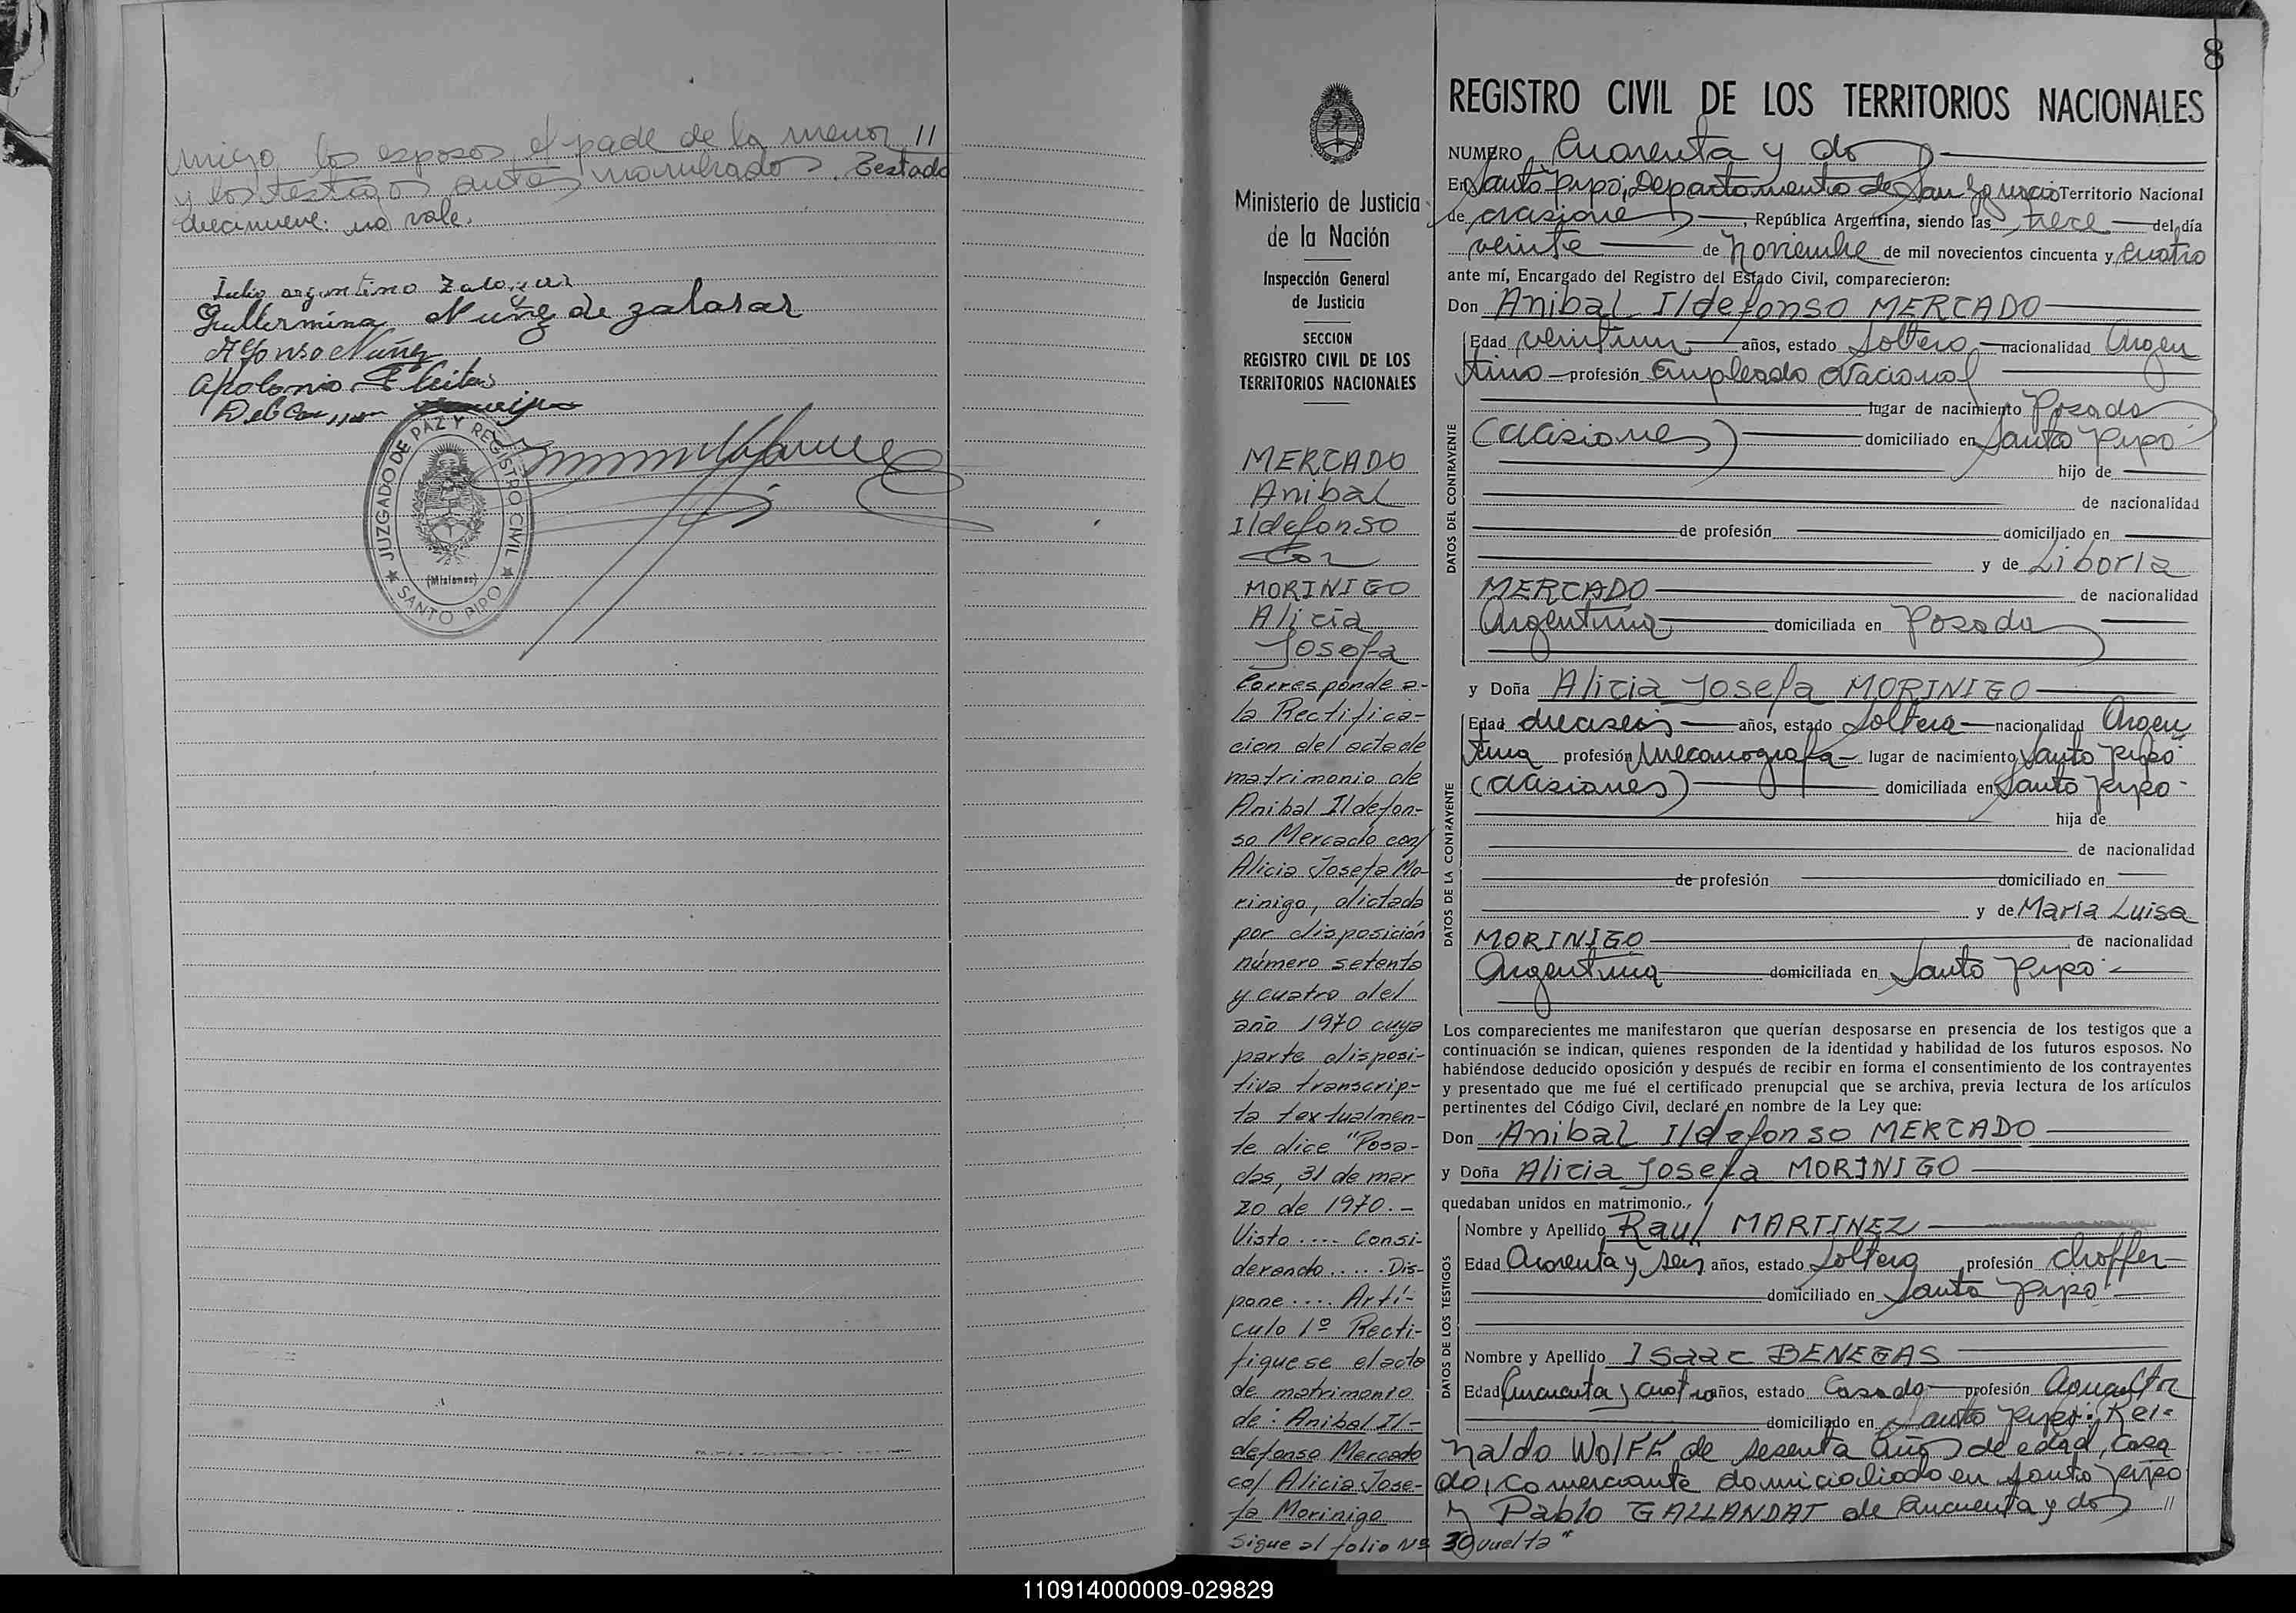 migo, los esposos, el padre de la menor //
y los testigos antes nombrados. Testado
diecinueve: no vale.
Julio argentino Zalazar
Guillermina Nuñez de zalasar
Alfonso Nuñez
Apolonio
JUZGADO DE PAZ Y REGISTRO CIVIL
(Misiones)
SANTO PIPO
8
Ministerio de Justicia
de la Nación
Inspección General
de Justicia
SECCION
REGISTRO CIVIL DE LOS
TERRITORIOS NACIONALES
MERCADO
Anibal
Ildefonso
Con
MORINIGO
Alicia
Josefa
Corresponde a
la Rectifica-
cion del acta de
matrimonio de
Anibal Ildefon-
so Mercado con/
Alicia Josefa Mo-
rinigo, dictada
por disposición
número setenta
y cuatro del
año 1970 cuya
parte disposi-
tiva transcrip-
ta textualmen-
te dice "Posa-
das, 31 de mar
zo de 1970.-
Visto .... Consi-
derando ..... Dis-
pone .... Artí-
culo 1º Recti-
fiquese el acta
de matrimonio
de: Anibal Il-
defonso Mercado
co/ Alicia Jose-
fa Morinigo
Sigue al folio Nº 39 vuelta"
REGISTRO CIVIL DE LOS TERRITORIOS NACIONALES
NUMERO Cuarenta y dos
En Santo Pipó, Departamento de San Ignacio Territorio Nacional
de Misiones, República Argentina, siendo las trece del día
veinte de Noviembre de mil novecientos cincuenta y cuatro
ante mí, Encargado del Registro del Estado Civil, comparecieron:
Don Anibal Ildefonso MERCADO
DATOS DEL CONTRAYENTE
Edad veintiun años, estado Soltero nacionalidad Argen
tino profesión Empleado Nacional
lugar de nacimiento Posadas
(Misiones) domiciliado en Santo Pipó
hijo de
de nacionalidad
de profesión domiciliado en
y de Liboria
MERCADO de nacionalidad
Argentina domiciliada en Posadas
y Doña Alicia Josefa MORINIGO
DATOS DE LA CONTRAYENTE
Edad dieciseis años, estado Soltera nacionalidad Argen
tina profesión Mecanografa lugar de nacimiento Santo Pipó
(Misiones) domiciliada en Santo Pipó
hija de
de nacionalidad
de profesión domiciliado en
y de Maria Luisa
MORINIGO de nacionalidad
Argentina domiciliada en Santo Pipó
Los comparecientes me manifestaron que querían desposarse en presencia de los testigos que a
continuación se indican, quienes responden de la identidad y habilidad de los futuros esposos. No
habiéndose deducido oposición y después de recibir en forma el consentimiento de los contrayentes
y presentado que me fué el certificado prenupcial que se archiva, previa lectura de los artículos
pertinentes del Código Civil, declaré en nombre de la Ley que:
Don Anibal Ildefonso MERCADO
y Doña Alicia Josefa MORINIGO
quedaban unidos en matrimonio.,
DATOS DE LOS TESTIGOS
Nombre y Apellido Raul MARTINEZ
Edad Cuarenta y seis años, estado Soltero profesión choffer
domiciliado en Santo Pipó
Nombre y Apellido Isaac BENEGAS
Edad Cincuenta y cuatro años, estado Casado profesión Agricultor
domiciliado en Santo Pipó; Rei-
naldo WolFF de sesenta años de edad, casa
do, Comerciante domiciliado en Santo Pipó
y Pablo GALLANDAT de Cincuenta y dos //
110914000009-029829